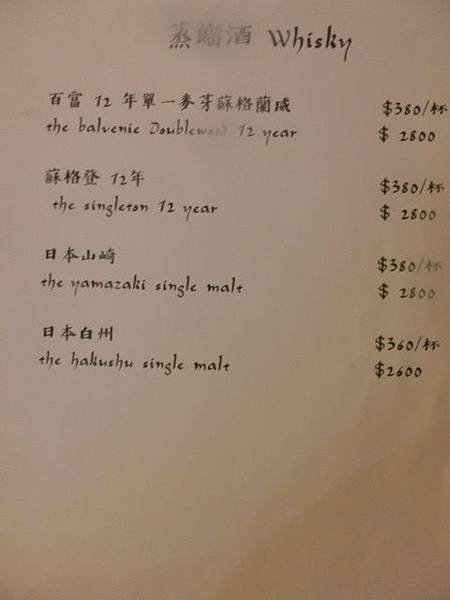 蒸餾酒 Whisky
百富 12 年單一麥芽蘇格蘭威 $380/杯
the balvenie Doublewood 12 year $ 2800
蘇格登 12年 $380/杯
the singleton 12 year $ 2800
日本山崎 $380/杯
the yamazaki single malt $ 2800
日本白州 $360/杯
the hakushu single malt $2600